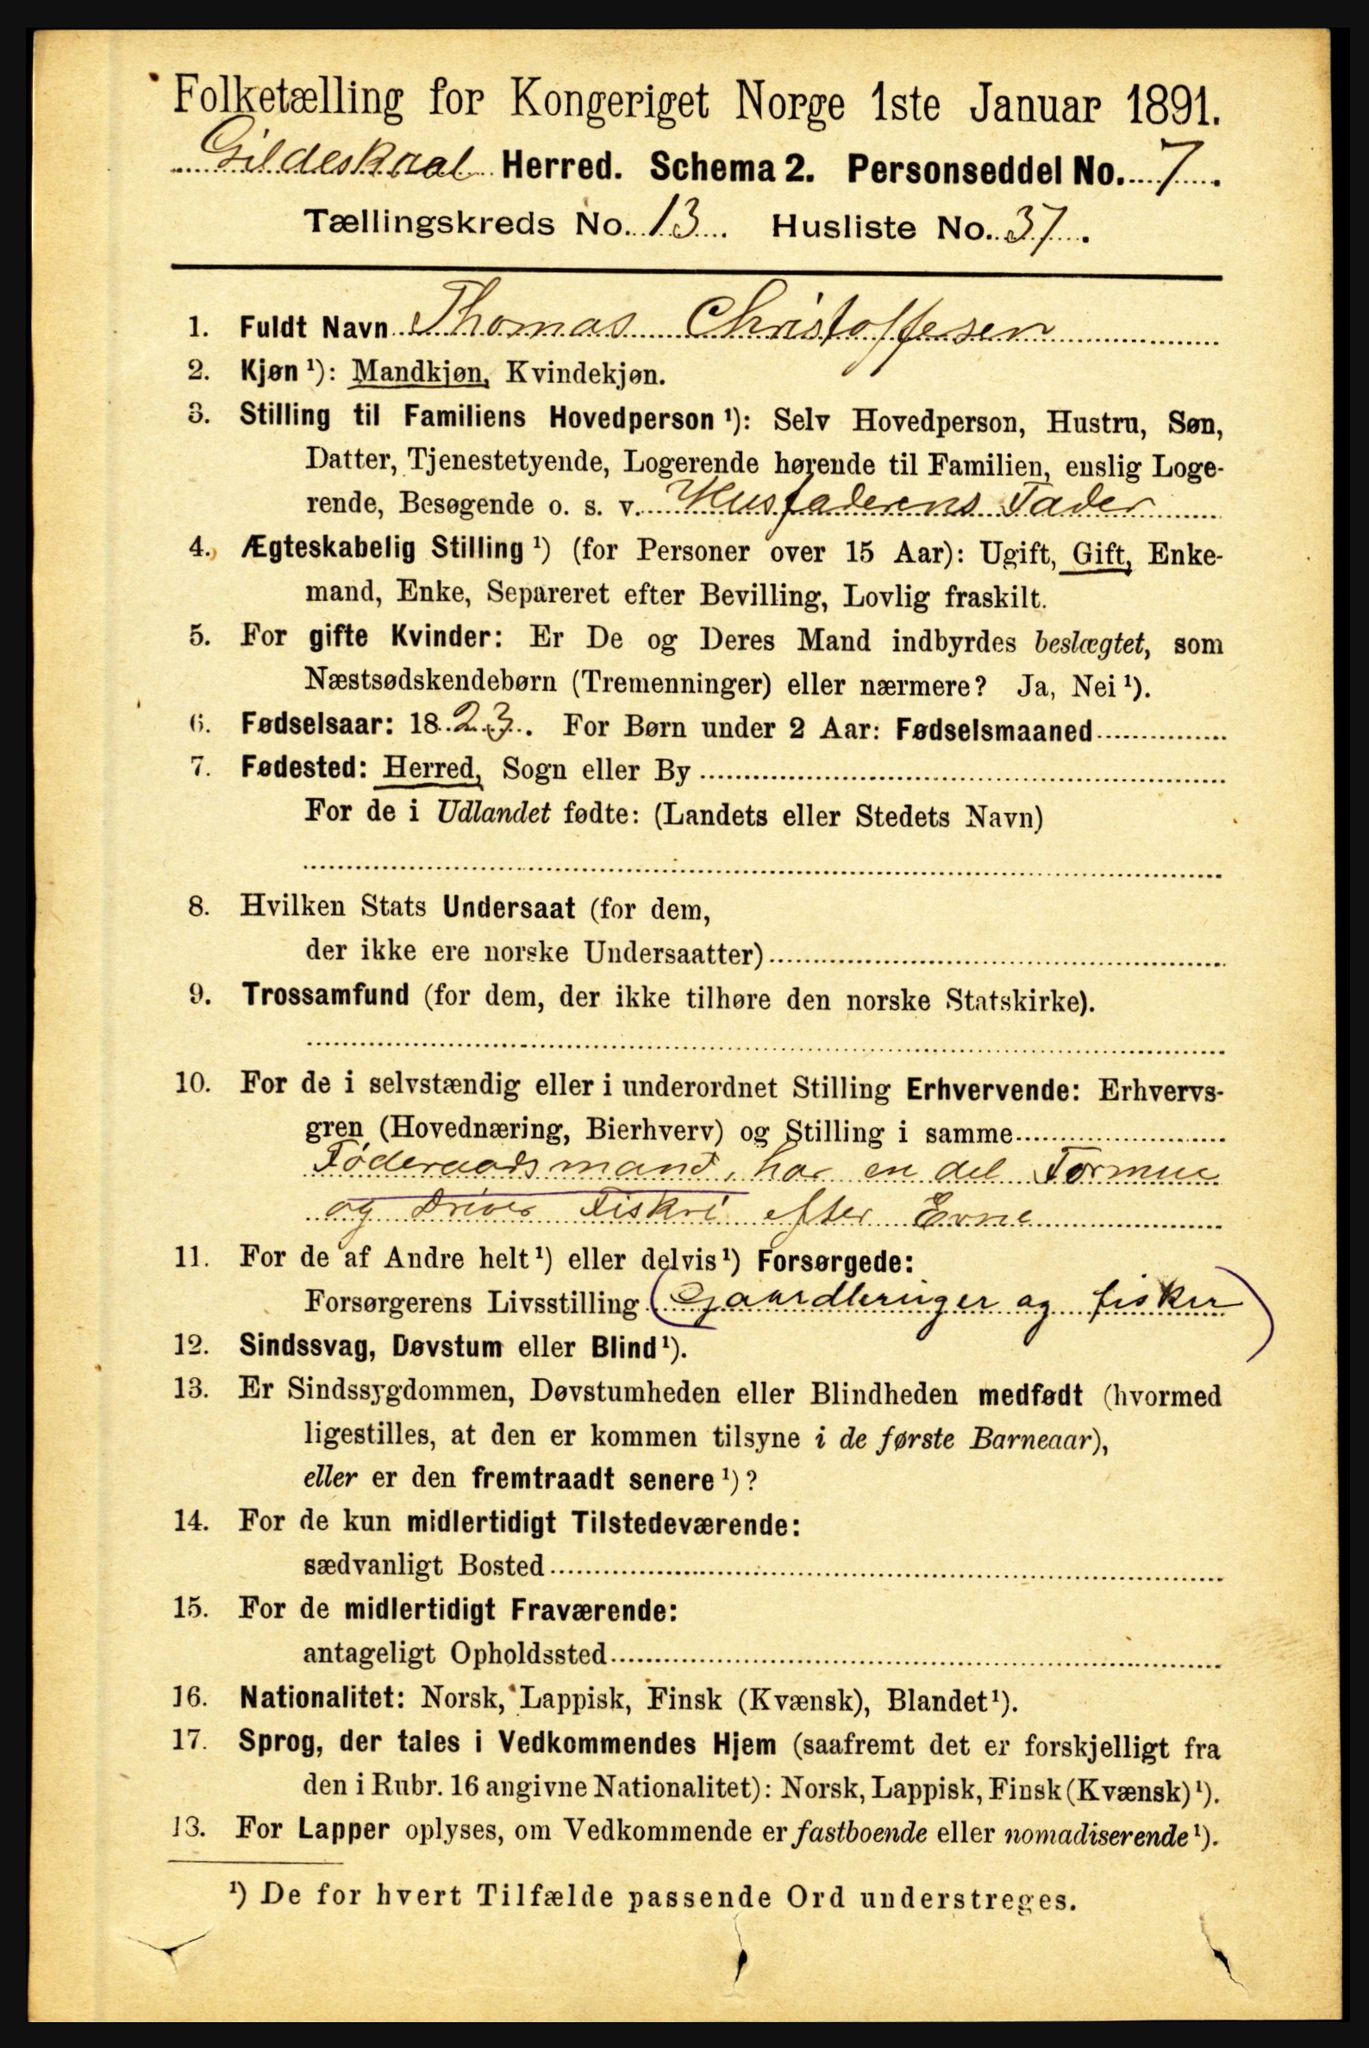 Folketælling for Kongeriget Norge 1ste Januar 1891.
Gildeskaal Herred. Schema 2. Personseddel No. 7.
Tællingskreds No. 13. Husliste No. 37.
1. Fuldt Navn Thomas Christoffersen
2. Kjøn ¹): Mandkjøn, Kvindekjøn.
3. Stilling til Familiens Hovedperson ¹): Selv Hovedperson, Hustru, Søn,
Datter, Tjenestetyende, Logerende hørende til Familien, enslig Loge-
rende, Besøgende o. s. v. Husfaderens Fader
4. Ægteskabelig Stilling ¹) (for Personer over 15 Aar): Ugift, Gift, Enke-
mand, Enke, Separeret efter Bevilling, Lovlig fraskilt.
5. For gifte Kvinder: Er De og Deres Mand indbyrdes beslægtet, som
Næstsødskendebørn (Tremenninger) eller nærmere? Ja, Nei ¹).
6. Fødselsaar: 1823. For Børn under 2 Aar: Fødselsmaaned
7. Fødested: Herred, Sogn eller By
For de i Udlandet fødte: (Landets eller Stedets Navn)
8. Hvilken Stats Undersaat (for dem,
der ikke ere norske Undersaatter)
9. Trossamfund (for dem, der ikke tilhøre den norske Statskirke).
10. For de i selvstændig eller i underordnet Stilling Erhvervende: Erhvervs-
gren (Hovednæring, Bierhverv) og Stilling i samme
Føderaadsmand, har en del Formue
og driver Fiskri efter Evne
11. For de af Andre helt ¹) eller delvis ¹) Forsørgede:
Forsørgerens Livsstilling (Gaardbruger og fisker)
12. Sindssvag, Døvstum eller Blind ¹).
13. Er Sindssygdommen, Døvstumheden eller Blindheden medfødt (hvormed
ligestilles, at den er kommen tilsyne i de første Barneaar),
eller er den fremtraadt senere ¹)?
14. For de kun midlertidigt Tilstedeværende:
sædvanligt Bosted
15. For de midlertidigt Fraværende:
antageligt Opholdssted
16. Nationalitet: Norsk, Lappisk, Finsk (Kvænsk), Blandet ¹).
17. Sprog, der tales i Vedkommendes Hjem (saafremt det er forskjelligt fra
den i Rubr. 16 angivne Nationalitet): Norsk, Lappisk, Finsk (Kvænsk) ¹).
13. For Lapper oplyses, om Vedkommende er fastboende eller nomadiserende ¹).
¹) De for hvert Tilfælde passende Ord understreges.